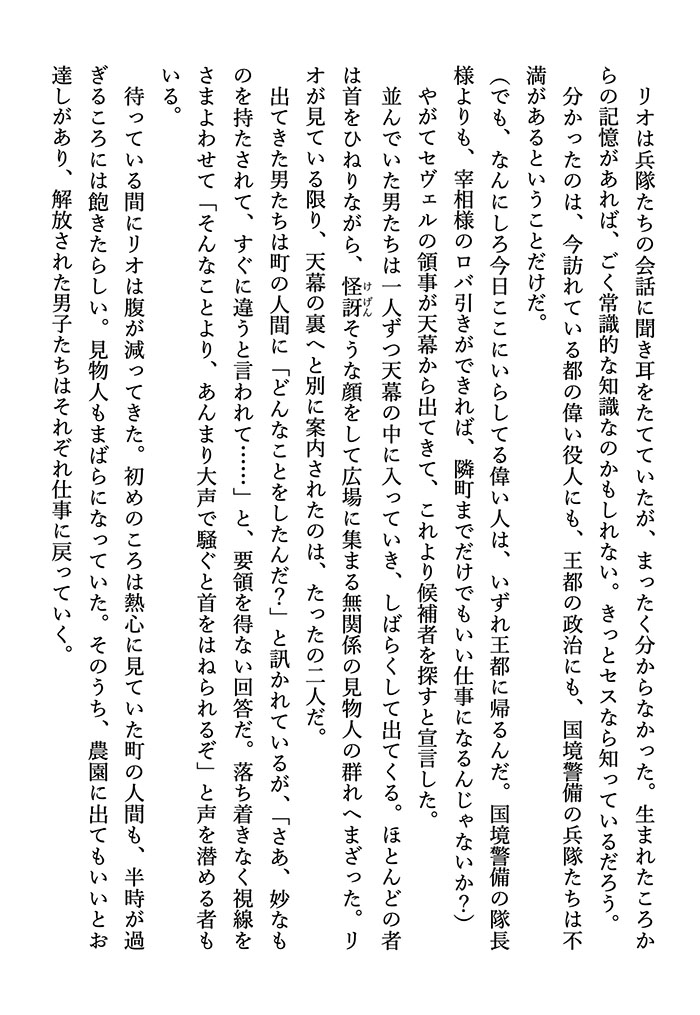 リオは兵隊たちの会話に聞き耳をたてていたが、まったく分からなかった。生まれたころか
らの記憶があれば、ごく常識的な知識なのかもしれない。きっとセスなら知っているだろう。
分かったのは、今訪れている都の偉い役人にも、王都の政治にも、国境警備の兵隊たちは不
満があるということだけだ。
（でも、なんにしろ今日ここにいらしてる偉い人は、いずれ王都に帰るんだ。国境警備の隊長
様よりも、宰相様のロバ引きができれば、隣町までだけでもいい仕事になるんじゃないか？）
やがてセヴェルの領事が天幕から出てきて、これより候補者を探すと宣言した。
並んでいた男たちは一人ずつ天幕の中に入っていき、しばらくして出てくる。ほとんどの者
は首をひねりながら、怪訝そうな顔をして広場に集まる無関係の見物人の群れへまざった。リ
けげん
オが見ている限り、天幕の裏へと別に案内されたのは、たったの二人だ。
出てきた男たちは町の人間に「どんなことをしたんだ？」と訊かれているが、「さあ、妙なも
のを持たされて、すぐに違うと言われて……」と、要領を得ない回答だ。落ち着きなく視線を
さまよわせて「そんなことより、あんまり大声で騒ぐと首をはねられるぞ」と声を潜める者も
いる。
待っている間にリオは腹が減ってきた。初めのころは熱心に見ていた町の人間も、半時が過
ぎるころには飽きたらしい。見物人もまばらになっていた。そのうち、農園に出てもいいとお
達しがあり、解放された男子たちはそれぞれ仕事に戻っていく。